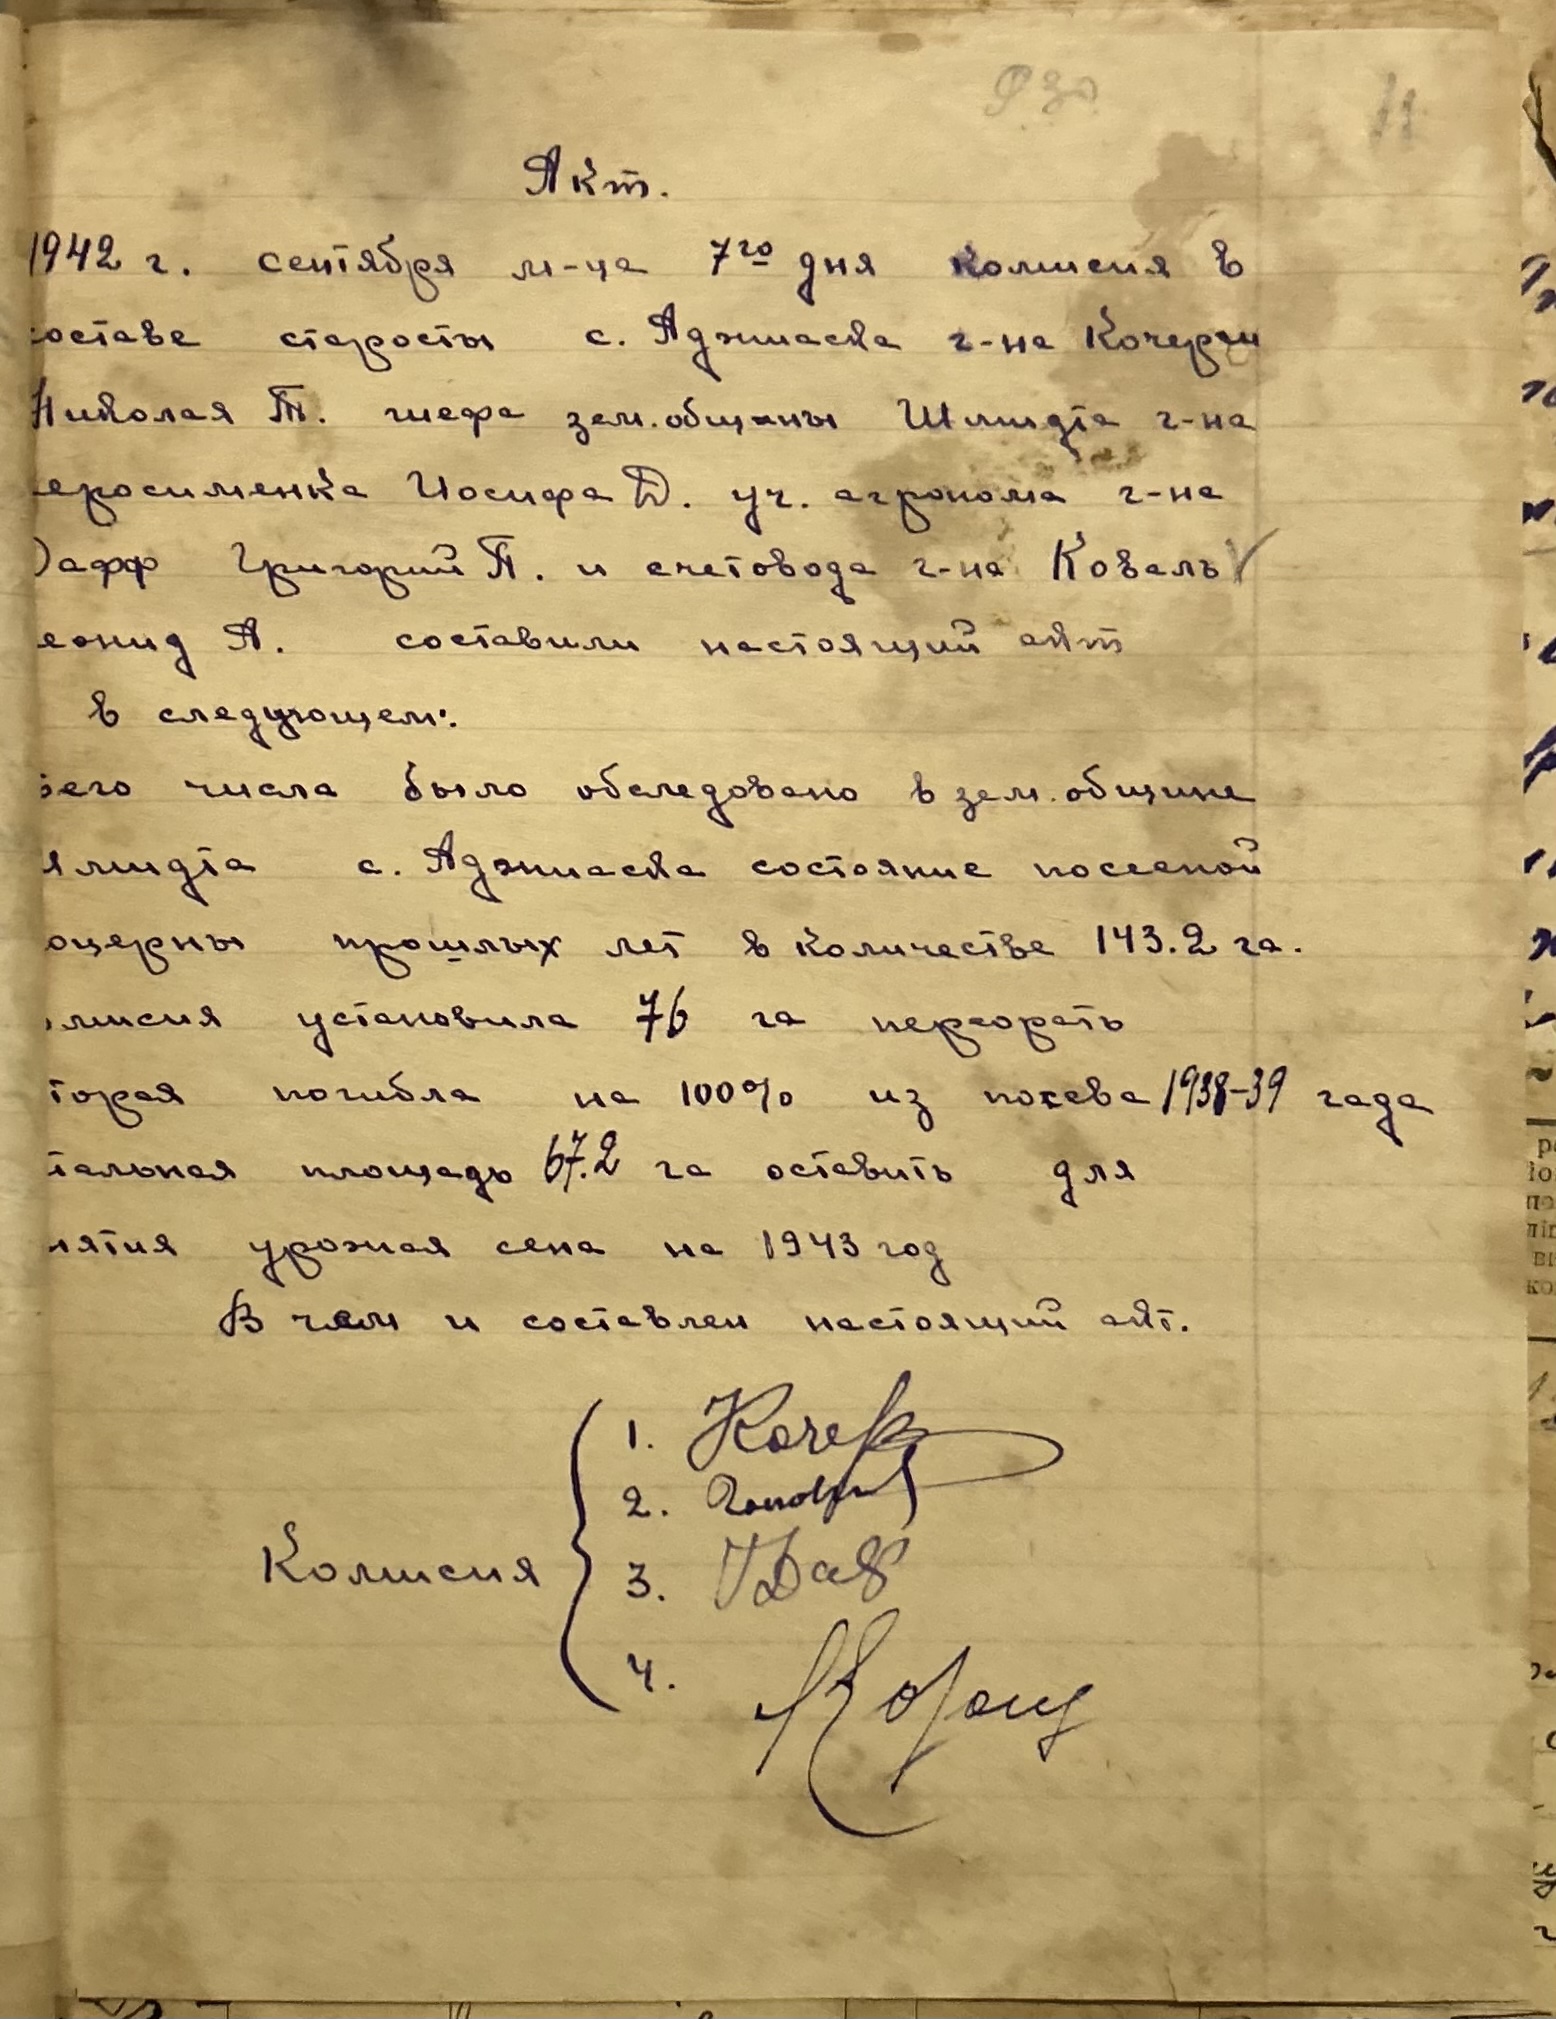 11
Акт.
1942 г. сентября м-ца 7го дня Комисия в
составе старосты с. Аджиаска г-на Кочерги
Николая Т. шефа зем. общины Шмидта г-на
еросименка Иосифа Д. уч. агронома г-на
Дафф Григорий П. и счетовода г-на Коваль
еонид А. составили настоящий акт
в следующем:
сего числа было обследовано в зем. общине
Шмидта с. Аджиаска состояние посееной
юцерны прошлых лет в количестве 143.2 га.
омисия установила 76 га переорать
торая погибла на 100% из посева 1938-39 года
тальная площадь 67.2 га оставить для
нятия урожая сена на 1943 год
В чем и составлен настоящий акт.
Комисия
1. Кочер
2.
3. ГДаф
4.